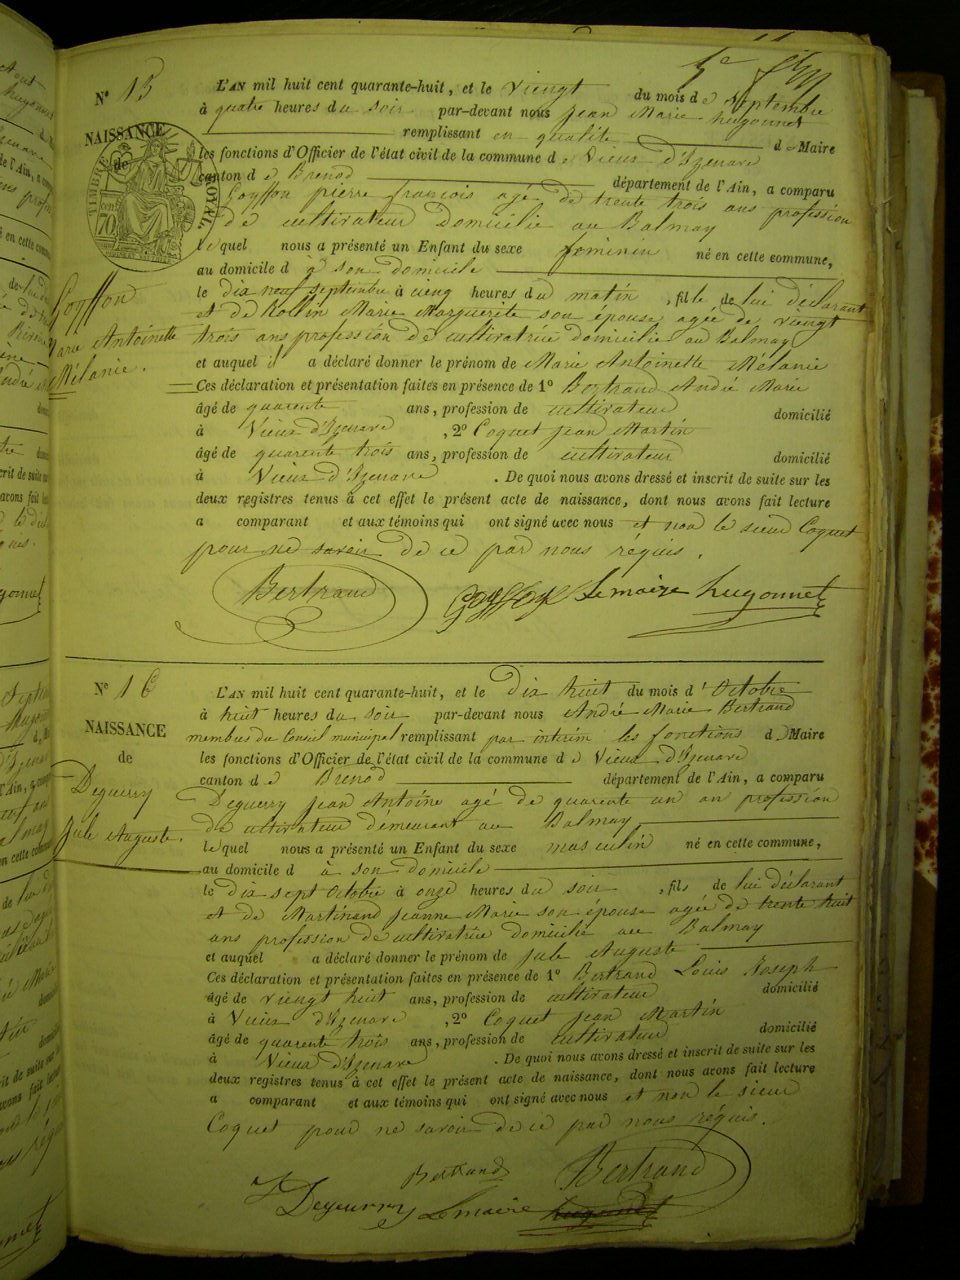 N° 15
NAISSANCE
de
TIMBRE ROYAL.
70
cen
Goyffon
Marie Antoinette
Mélanie.
L'AN mil huit cent quarante-huit, et le viengt du mois de Septembre
à quatre heures du soir par-devant nous jean Marie hugonnet
remplissant en qualité de Maire
les fonctions d'Officier de l'état civil de la commune de Vieux d'Izenave
canton de Brenod département de l'Ain, a comparu
Goyffon pierre françois agé de trente trois ans profession
de cultivateur Domicilié au Balmay
lequel nous a présenté un Enfant du sexe feminin né en cette commune,
au domicile d son domicile
le dix neuf septembre à cieng heures du matin, fille de lui déclarant
et de Rollin Marie Marguerite son épouse agée de viengt
trois ans profession de cultivatrice domicilié au Balmay
et auquel il a déclaré donner le prénom de Marie Antoinette Mélanie
Ces déclaration et présentation faites en présence de 1° Bertrand André Marie
âgé de quarente ans, profession de cultivateur domicilié
à Vieux d'Izenave, 2° Coquet jean Martin
âgé de quarente trois ans, profession de cultivateur domicilié
à Vieux d'Izenave. De quoi nous avons dressé et inscrit de suite sur les
deux registres tenus à cet effet le présent acte de naissance, dont nous avons fait lecture
a comparant et aux témoins qui ont signé avec nous et non le sieur Coquet
pour ne savoir de ce par nous réquis.
Bertrand Goyffon Le maire hugonnet
N° 16
NAISSANCE
de
Deguerry
jule Auguste.
L'AN mil huit cent quarante-huit, et le dix huit du mois d'Octobre
à huit heures du soir par-devant nous André Marie Bertrand
membres du Conseil municipal remplissant par interim les fonctions de Maire
les fonctions d'Officier de l'état civil de la commune de Vieux d'Izenave
canton de Brenod département de l'Ain, a comparu
Deguerry jean Antoine agé de quarente un an profession
de cultivateur démeurant au Balmay
lequel nous a présenté un Enfant du sexe masculin né en cette commune,
au domicile d à son domicile
le dix sept Octobre à onze heures du soir, fils de lui déclarant
et de Martinand jeanne Marie son épouse agée de trente huit
ans profession de cultivatrice domicilié au Balmay
et auquel a déclaré donner le prénom de jule Auguste
Ces déclaration et présentation faites en présence de 1° Bertrand Louis Joseph
âgé de viengt huit ans, profession de cultivateur domicilié
à Vieux d'Izenave, 2° Coquet jean Martin
âgé de quarente trois ans, profession de cultivateur domicilié
à Vieux d'Izenave. De quoi nous avons dressé et inscrit de suite sur les
deux registres tenus à cet effet le présent acte de naissance, dont nous avons fait lecture
a comparant et aux témoins qui ont signé avec nous et non le sieur
Coquet pour ne savoir de ce par nous réquis.
Bertrand Bertrand
Deguerry Le maire hugonnet